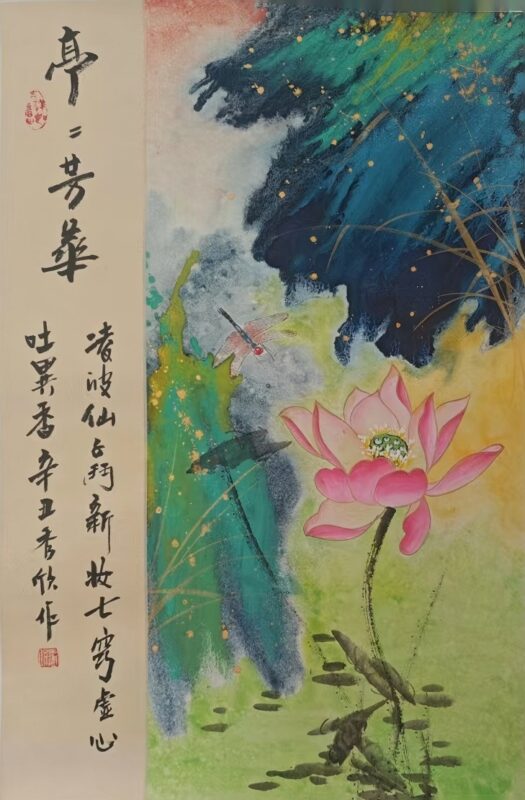 亭〻芳華
凌波仙子鬥新妝七窍虚心
吐異香辛丑秀欣作